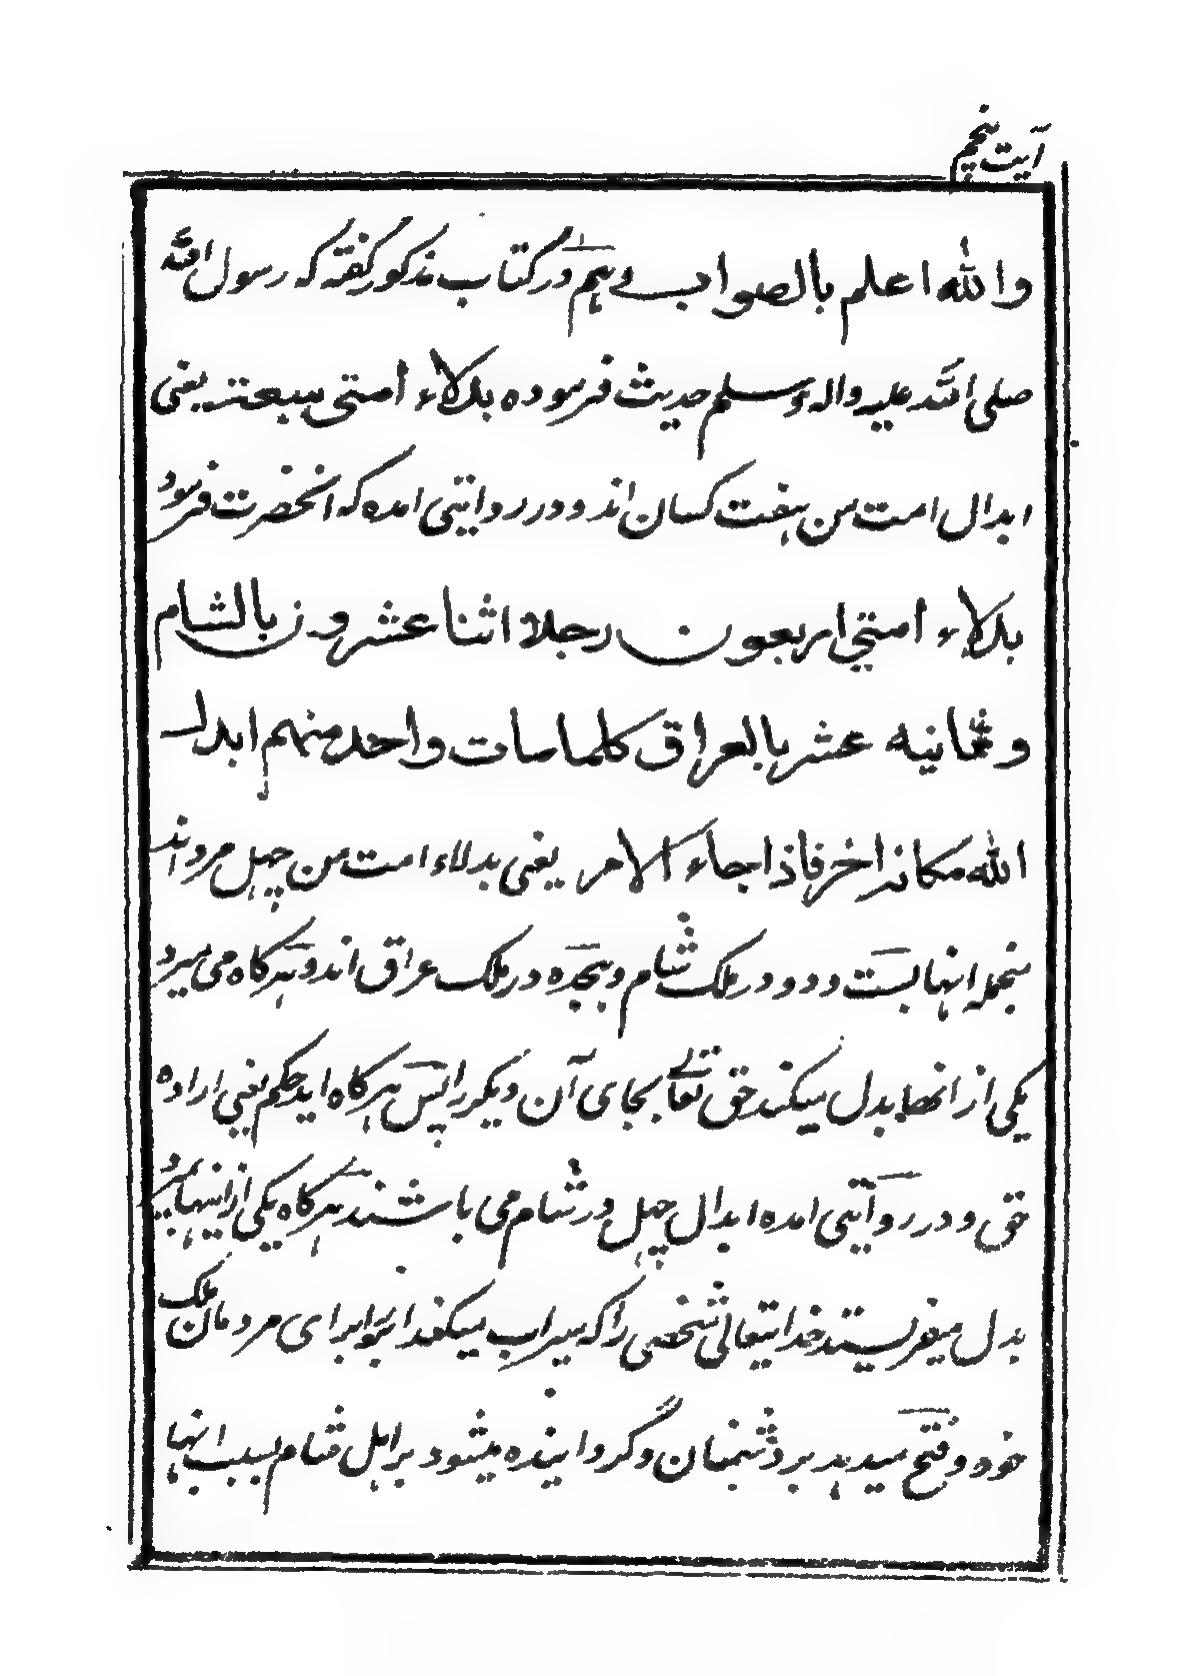 آیت پنجم
والله اعلم بالصواب و هم در کتاب مذکور گفته که رسول الله
صلی الله علیه واله وسلم حدیث فرموده بدلاء امتی سبعتہ یعنی
ابدال امت من هفت کسان اند و در روایتی امده که انحضرت فرمود
بدلاء امتی اربعون رجلا اثنا عشرون بالشام
و ثمانیه عشر بالعراق کلما مات واحد منهم ابدل
الله مکانه اخر فاذا جاء الامر یعنی بدلاء امت من چهل مرد اند
منجمله اینها بست و دو در ملک شام و هجده در ملک عراق اند و هرگاه می میرد
یکی از انها بدل میکند حق تعالے بجای آن دیگر را پس هرگاه اید حکم یعنی اراده
حق و در روایتی امده ابدال چهل در شام می باشند هرگاه یکی از اینها بمیرد
بدل میفرستد خدایتعالی شخصی را که سیراب میکند ابرها برای مردمان ملک
خود و فتح میدهد بر دشمنان و گرداینده میشود بر اهل شام بسبب اینها